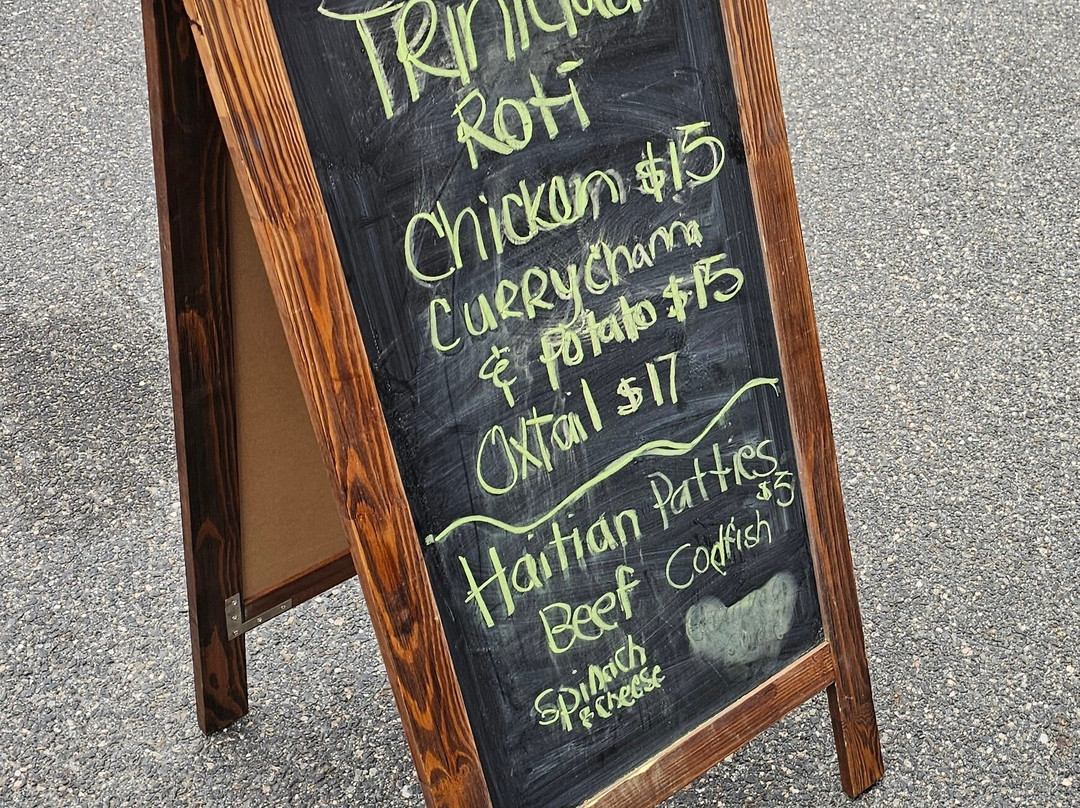 Roti
Chicken $15
Curry Channa
& Potato $15
Oxtail $17
Haitian Patties
$3
Beef Codfish
Spinach
& cheese